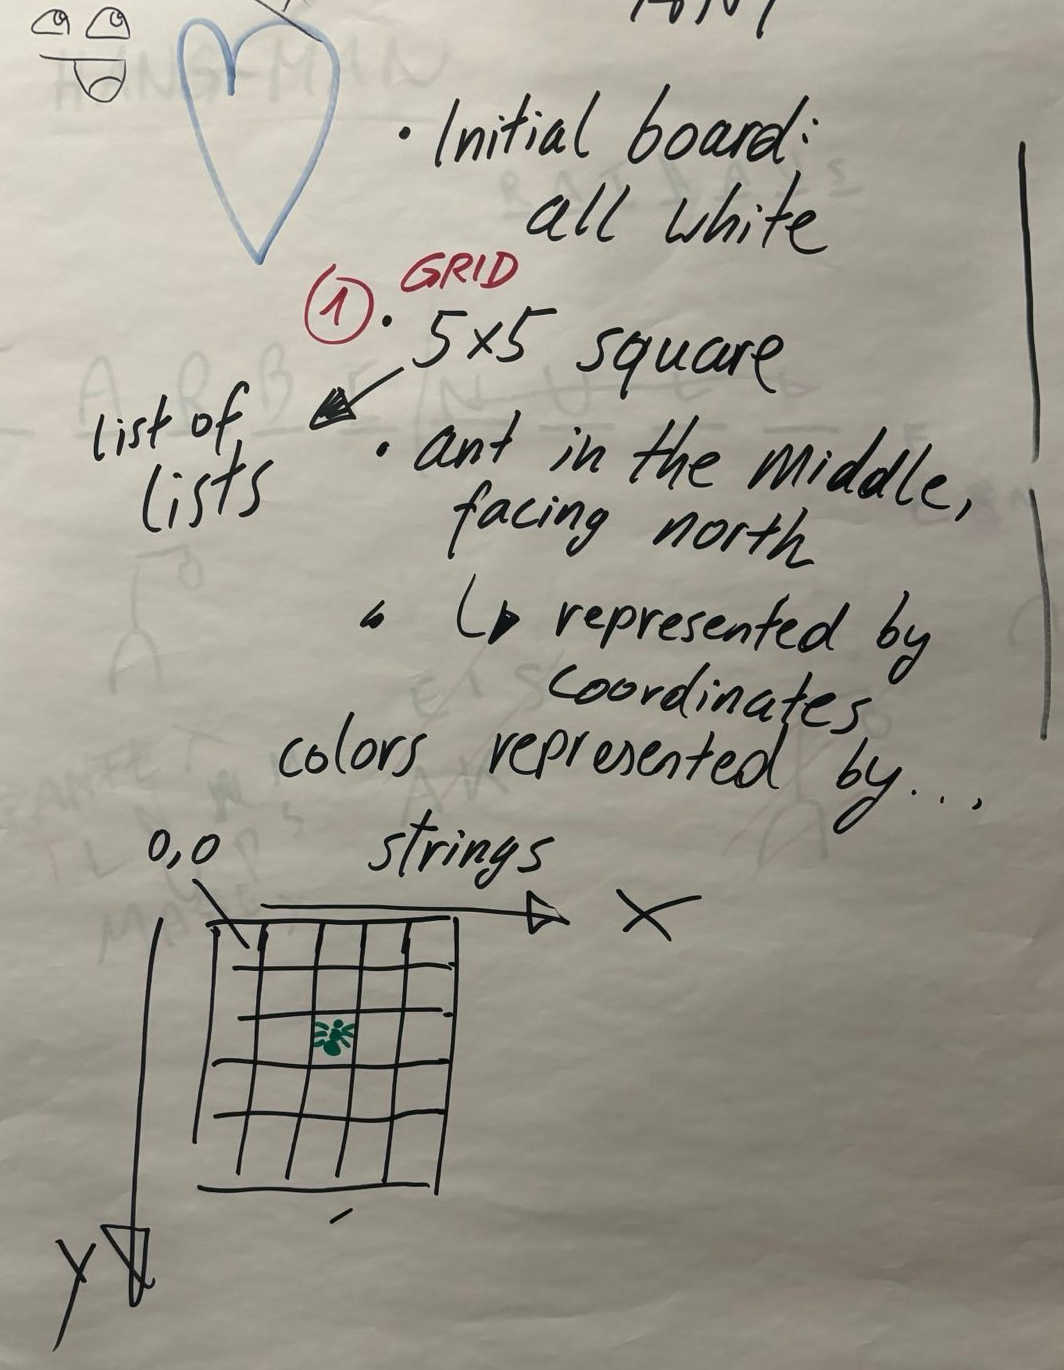 ANT
• Initial board:
all white
① GRID
• 5x5 square
list of
lists
• ant in the middle,
facing north
• ↳ represented by
coordinates
colors represented by...
strings
0,0
X
y